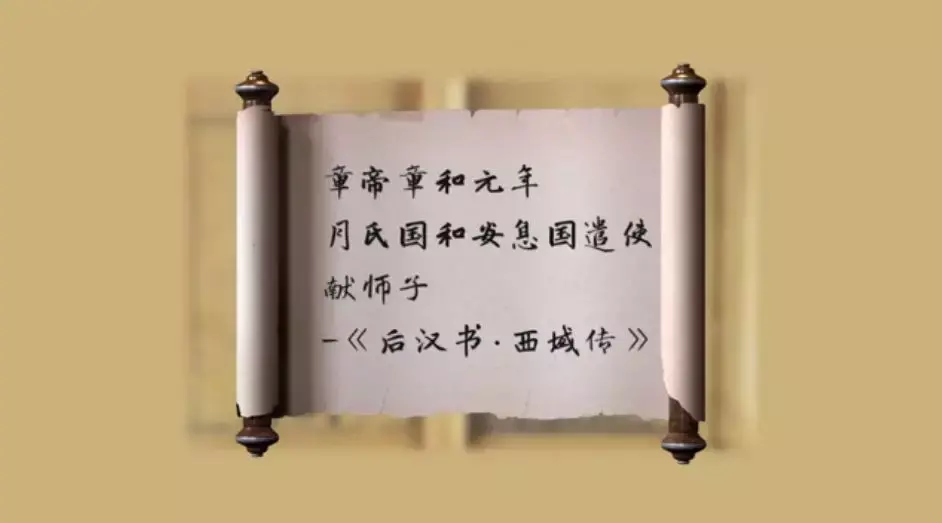 章帝章和元年
月氏国和安息国遣使
献师子
-《后汉书·西域传》